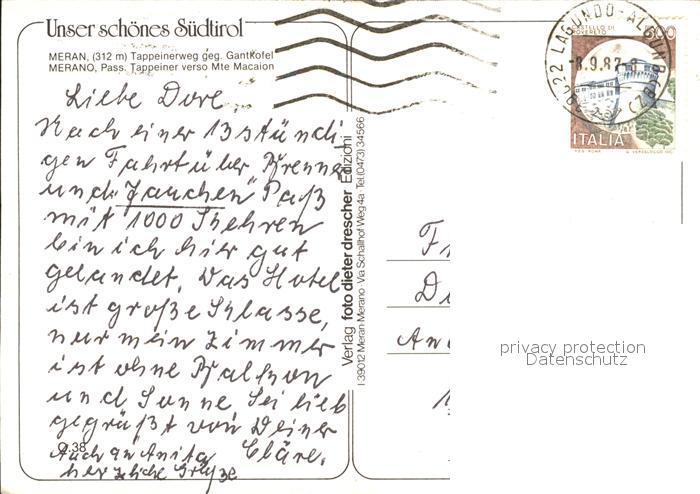 Unser schönes Südtirol
MERAN, (312 m) Tappeinerweg geg. Gantkofel
MERANO, Pass. Tappeiner verso Mte Macaion
Liebe Dore
Nach einer 13 stündi
gen Fahrt über Brenner
und „Jauchen" Paß
mit 1000 Kehren
bin ich hier gut
gelandet. Das Hotel
ist große Klasse,
nur mein Zimmer
ist ohne Balkon
und Sonne. Sei lieb
gegrüßt von Deiner
Cläre.
Auch an Anita
herzliche Grüße
Q 38
Verlag foto dieter drescher Edizioni
I-39012 Meran-Merano · Via Schallhof Weg 4a · Tel. (0473) 34566
39022 LAGUNDO-ALGUND (BZ)
-8.9.87-8
CASTELLO DI
ROVERETO
600
ITALIA
Fr
D
An
1
privacy protection
Datenschutz